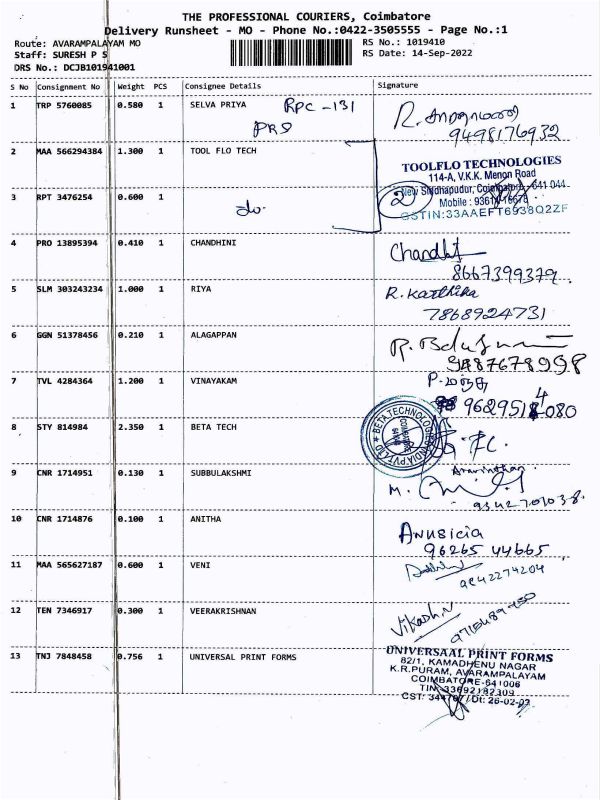 THE PROFESSIONAL COURIERS, Coimbatore
Delivery Runsheet - MO - Phone No.:0422-3505555 - Page No.:1
Route: AVARAMPALAYAM MO
RS No.: 1019410
Staff: SURESH P S
RS Date: 14-Sep-2022
DRS No.: DCJB101941001
S No Consignment No Weight PCS Consignee Details Signature
1 TRP 5760085 0.580 1 SELVA PRIYA RPC -131
PRS
9498176932
2 MAA 566294384 1.300 1 TOOL FLO TECH
TOOLFLO TECHNOLOGIES
114-A, V.K.K. Menon Road
New Siddhapudur, Coimbatore - 641 044
Mobile :
GSTIN:33AAEFT6938Q2ZF
3 RPT 3476254 0.600 1 do. 2
4 PRO 13895394 0.410 1 CHANDHINI
8667399379
5 SLM 303243234 1.000 1 RIYA R. Karthika
7868924731
6 GGN 51378456 0.210 1 ALAGAPPAN
9487678998
7 TVL 4284364 1.200 1 VINAYAKAM
8 STY 814984 2.350 1 BETA TECH
9 CNR 1714951 0.130 1 SUBBULAKSHMI
10 CNR 1714876 0.100 1 ANITHA ANUSICIA
96265 44665
11 MAA 565627187 0.600 1 VENI
9842274204
12 TEN 7346917 0.300 1 VEERAKRISHNAN Vikash.V
13 TNJ 7848458 0.756 1 UNIVERSAL PRINT FORMS
UNIVERSAAL PRINT FORMS
82/1, KAMADHENU NAGAR
K.R.PURAM, AVARAMPALAYAM
COIMBATORE-641006
TIN: 33692182309